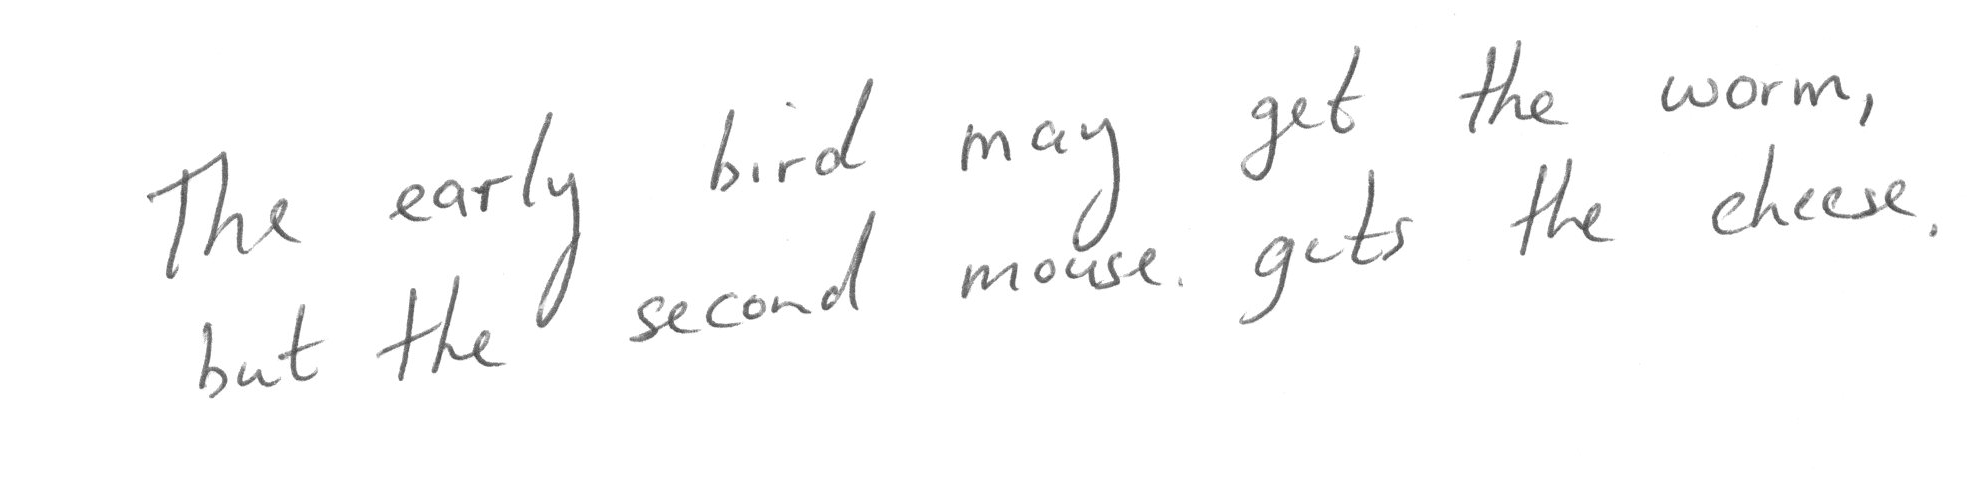 The early bird may get the worm,
but the second mouse. gets the cheese.